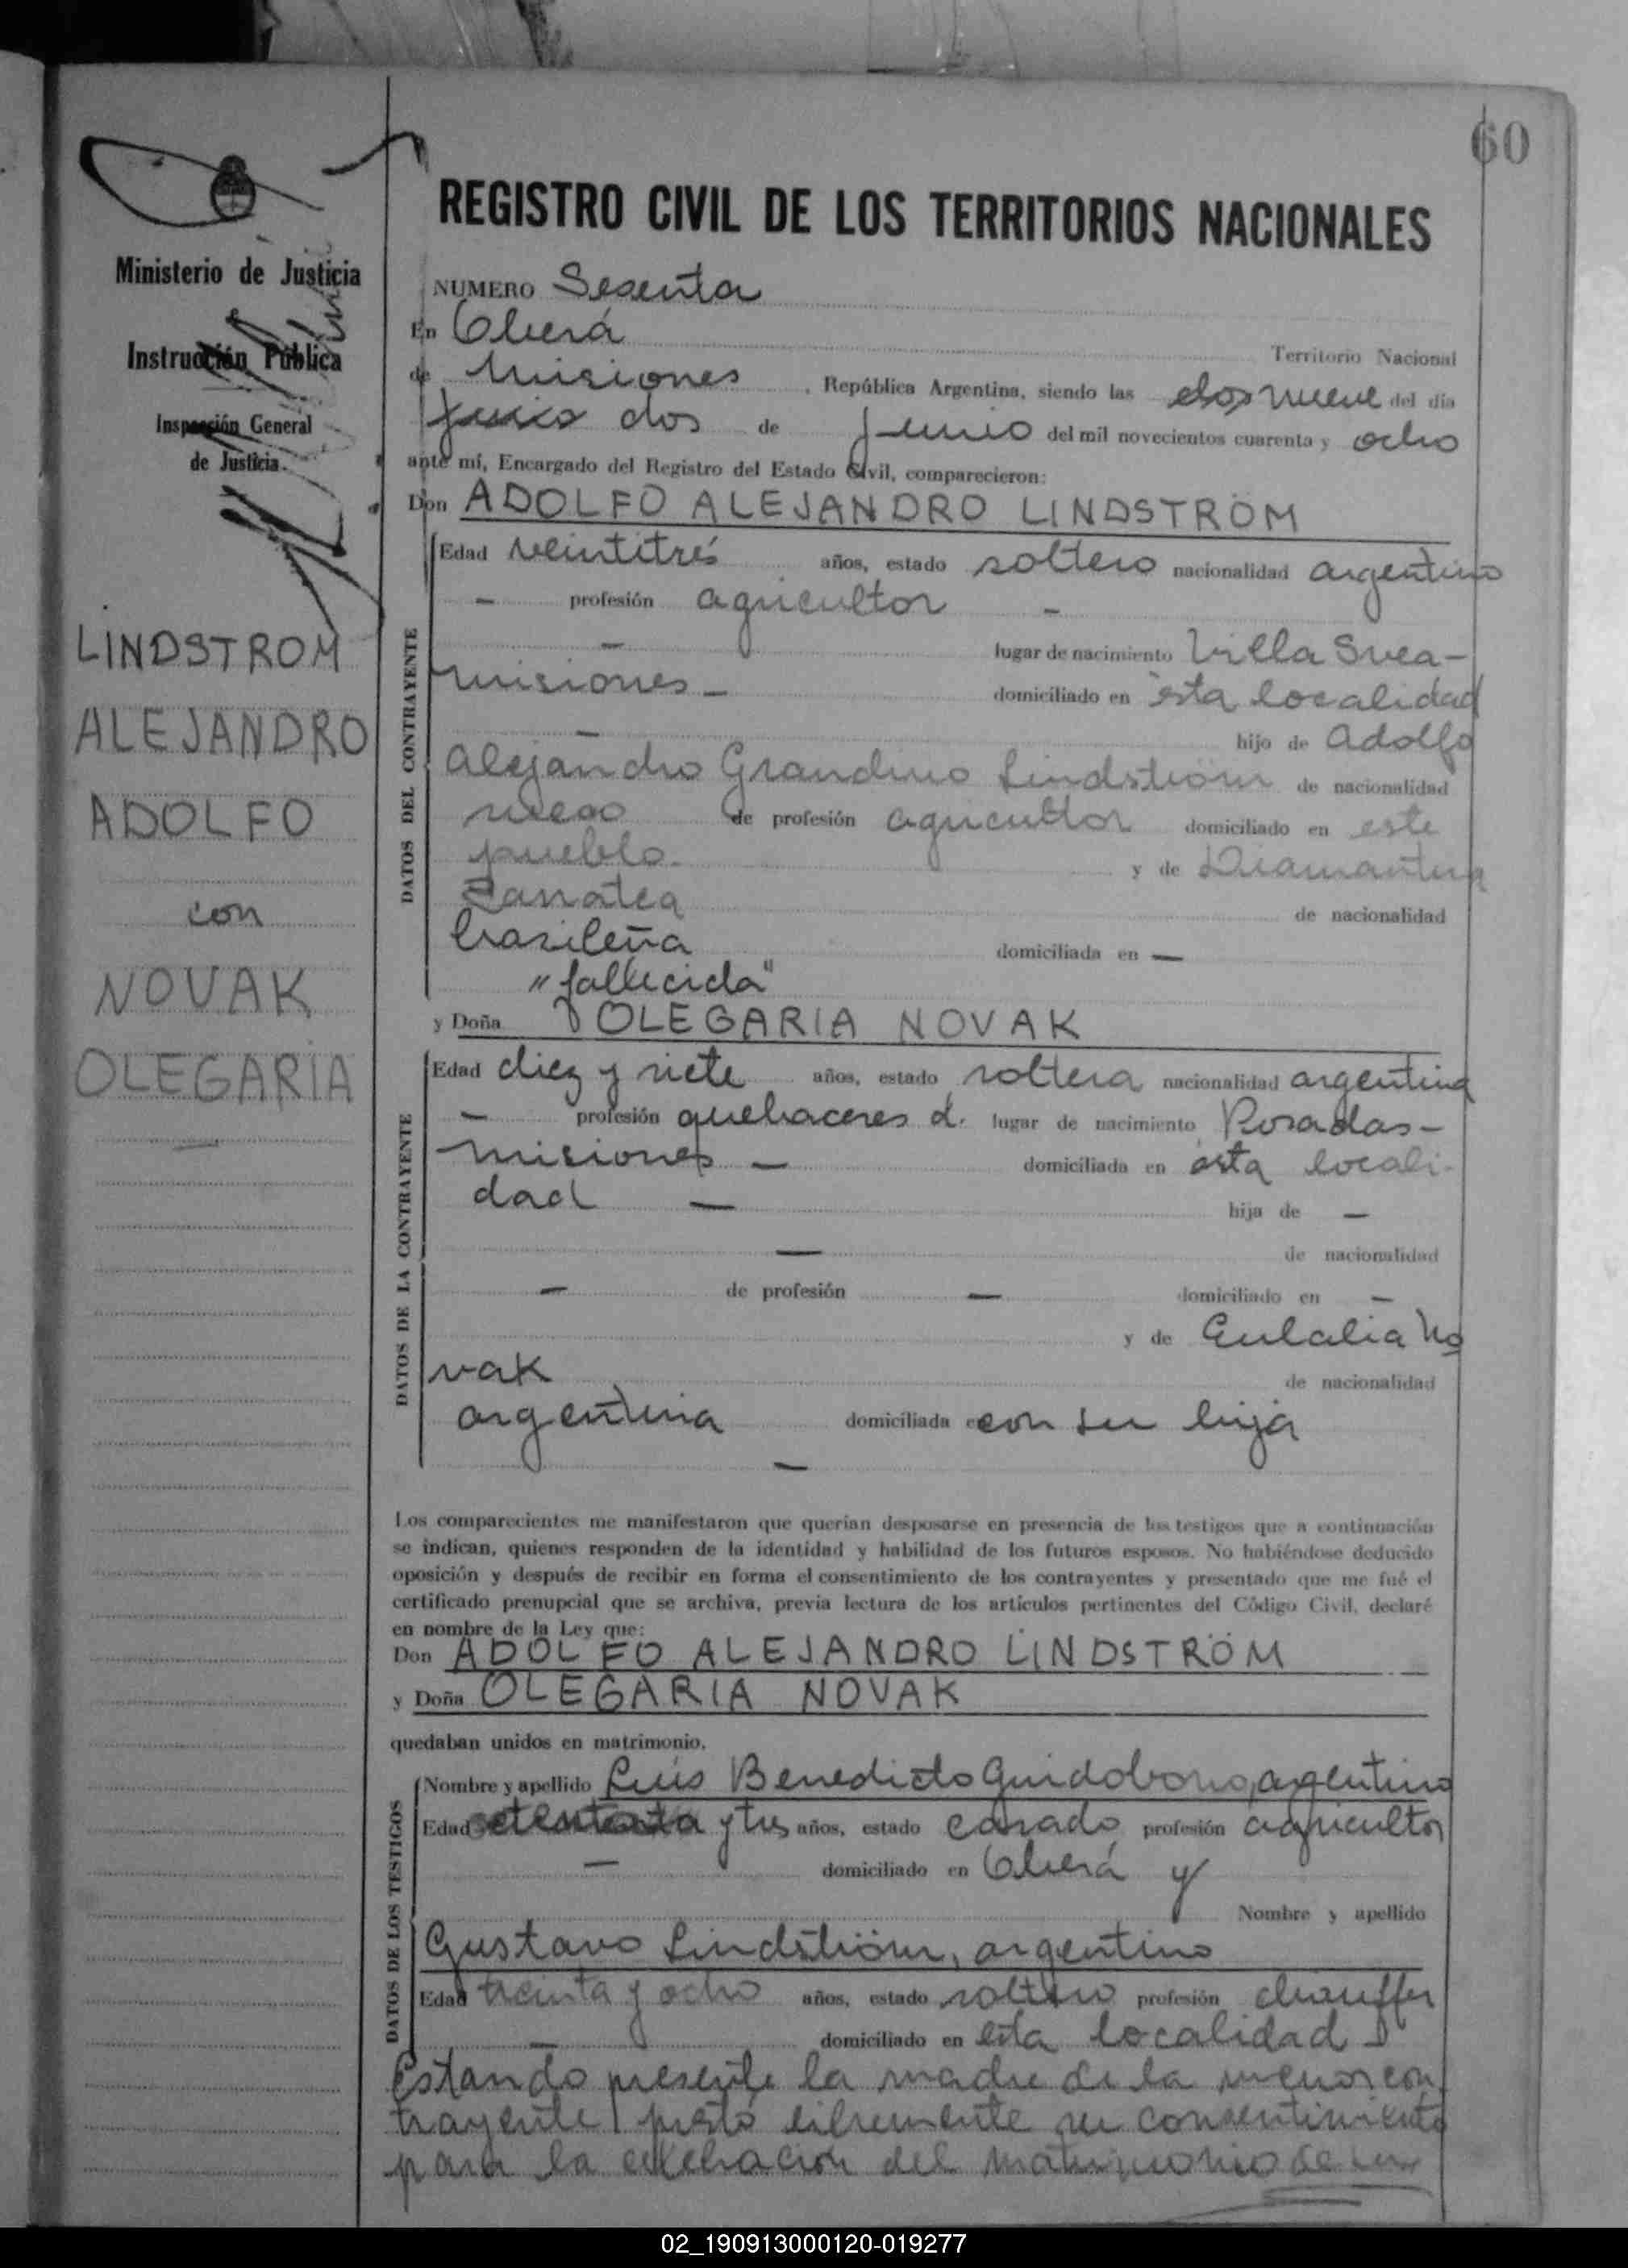 60
REGISTRO CIVIL DE LOS TERRITORIOS NACIONALES
Ministerio de Justicia
Instrucción Pública
Inspección General
de Justicia
LINDSTROM
ALEJANDRO
ADOLFO
con
NOVAK
OLEGARIA
NUMERO Sesenta
En Oberá Territorio Nacional
de Misiones, República Argentina, siendo las nueve del día
dos de junio del mil novecientos cuarenta y ocho
ante mí, Encargado del Registro del Estado Civil, comparecieron:
Don ADOLFO ALEJANDRO LINDSTRÖM
DATOS DEL CONTRAYENTE
Edad veintitrés años, estado soltero nacionalidad argentino
— profesión agricultor —
— lugar de nacimiento Villa Svea—
Misiones— domiciliado en esta localidad
— hijo de Adolfo
Alejandro Lindström de nacionalidad
sueco de profesión agricultor domiciliado en este
pueblo. y de Diamantina
de nacionalidad
brasileña domiciliada en —
"fallecida"
y Doña OLEGARIA NOVAK
DATOS DE LA CONTRAYENTE
Edad diez y siete años, estado soltera nacionalidad argentina
— profesión quehaceres d. lugar de nacimiento Posadas—
Misiones — domiciliada en esta locali-
dad — hija de —
— de nacionalidad
— de profesión — domiciliado en —
y de Eulalia No
vak de nacionalidad
argentina domiciliada con su hija
—
Los comparecientes me manifestaron que querían desposarse en presencia de los testigos que a continuación
se indican, quienes responden de la identidad y habilidad de los futuros esposos. No habiéndose deducido
oposición y después de recibir en forma el consentimiento de los contrayentes y presentado que me fué el
certificado prenupcial que se archiva, previa lectura de los artículos pertinentes del Código Civil, declaré
en nombre de la Ley que:
Don ADOLFO ALEJANDRO LINDSTRÖM
y Doña OLEGARIA NOVAK
quedaban unidos en matrimonio.
DATOS DE LOS TESTIGOS
Nombre y apellido Luis Benedicto Guidobono, argentino
Edad y tres años, estado casado profesión agricultor
— domiciliado en Oberá y
Nombre y apellido
Gustavo Lindström, argentino
Edad treinta y ocho años, estado soltero profesión chauffer
— domiciliado en esta localidad
Estando presente la madre de la menor con
trayente prestó libremente su consentimiento
para la celebración del matrimonio de su
02_190913000120-019277